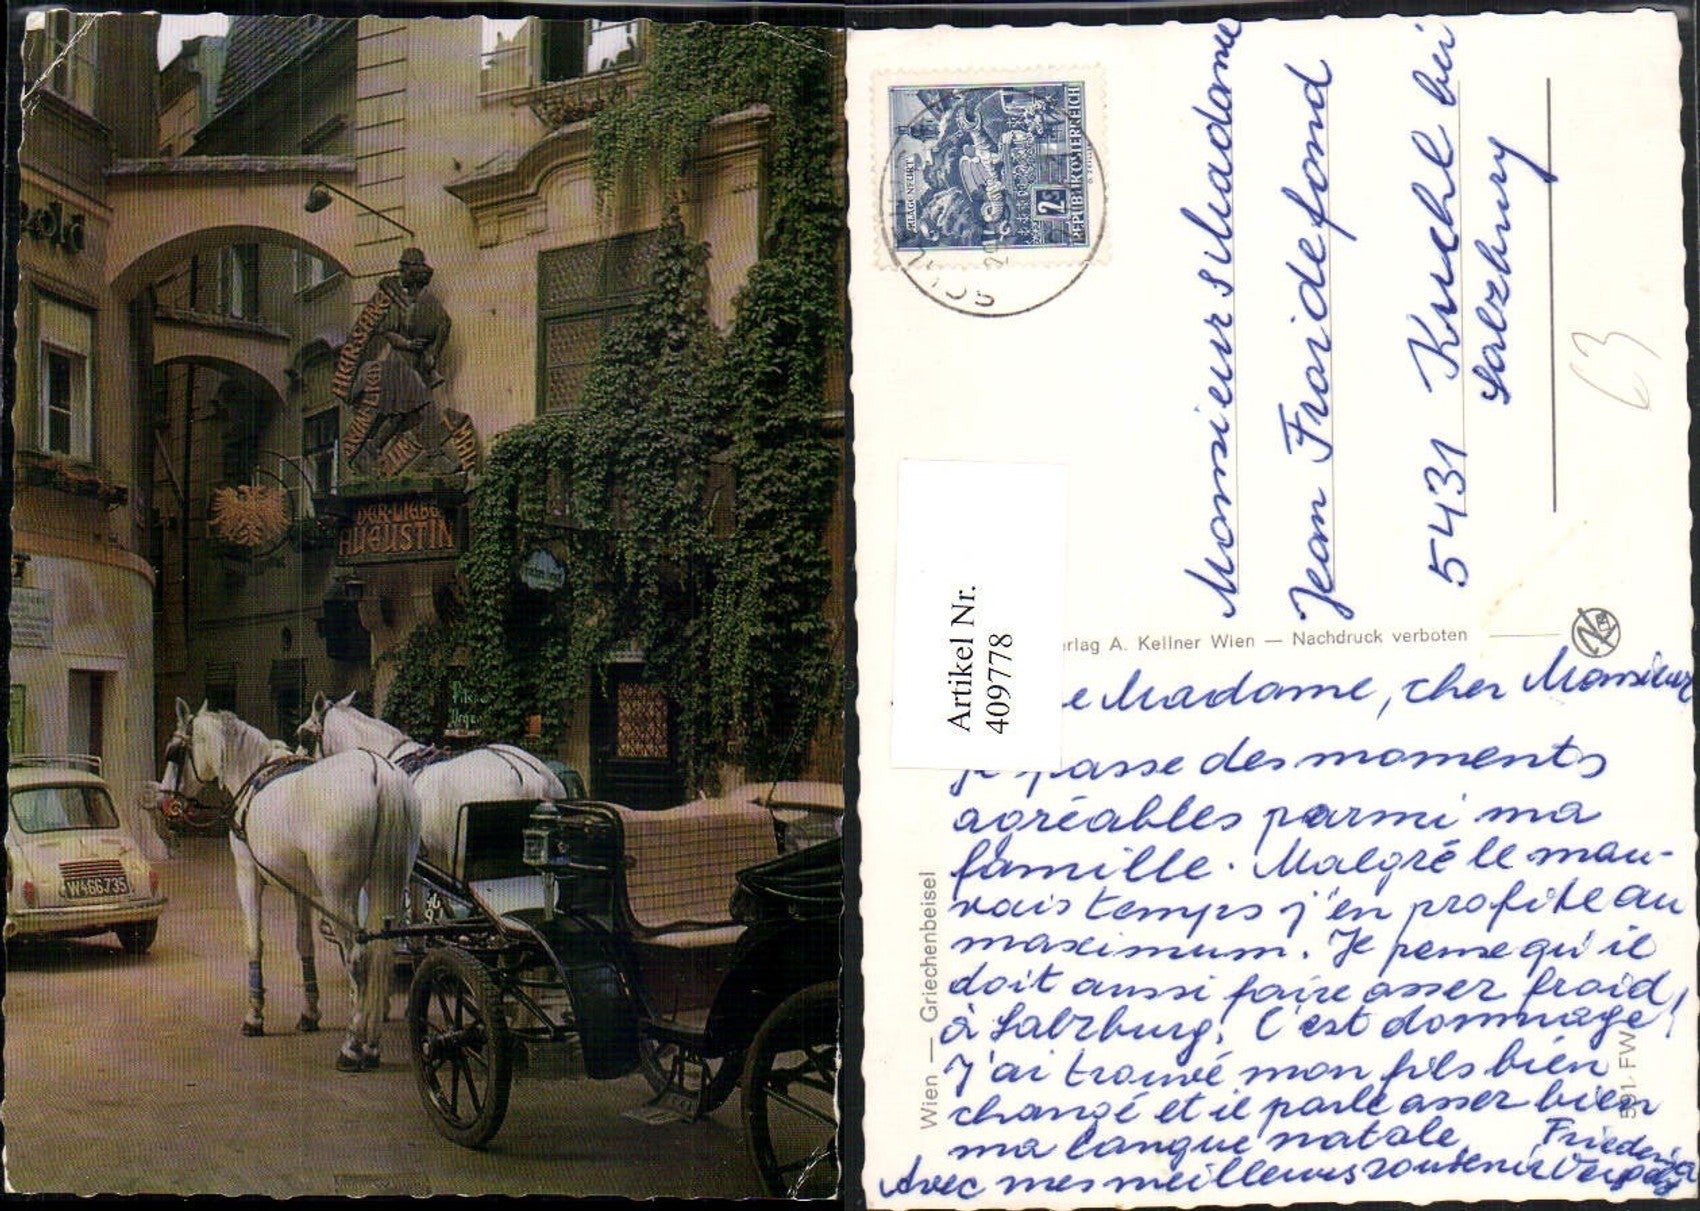 HIER·SANG
DER·LIEBE
AUGUSTIN
W466.735
REPUBLIK ÖSTERREICH
2
Monsieur & Madame
Jean Froidefond
5431 Kuchl bei
Salzburg
63
Artikel Nr.
409778
erlag A. Kellner Wien — Nachdruck verboten
Wien — Griechenbeisel
e Madame, cher Monsieur
Je passe des moments
agréables parmi ma
famille. Malgré le mau-
vais temps j'en profite au
maximum. Je pense qu'il
doit aussi faire assez froid,
à Salzburg. C'est dommage!
J'ai trouvé mon fils bien
changé et il parle assez bien
ma langue natale.
Avec mes meilleurs souvenirs